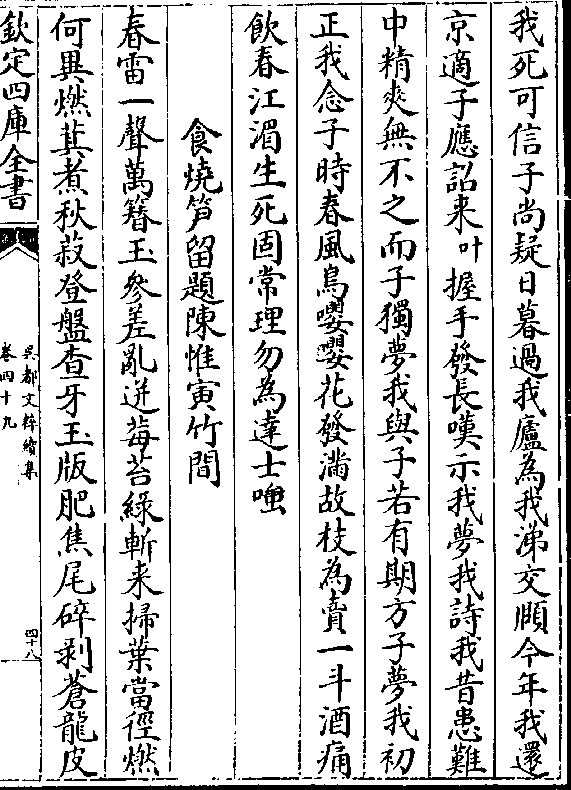 我死可信子尚疑日暮過我廬為我涕交頤今年我還
京適子應詔来叶握手發長嘆示我夢我詩我昔患難
中精爽無不之而子獨夢我與子若有期方子夢我初
正我念子時春風鳥嚶嚶花發滿故枝為賣一斗酒痛
飲春江湄生死固常理勿為達士嗤
食燒笋留題陳惟寅竹間
春雷一聲萬簪玉參差亂迸莓苔綠斬来掃葉當徑燃
何異燃萁煮秋菽登盤查牙玉版肥焦尾碎剥蒼龍皮
欽定四庫全書
吳都文粹續集
卷四十九
四十八